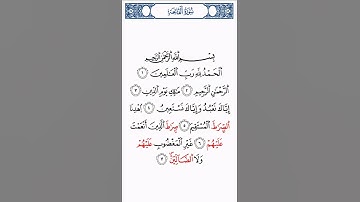 سُورَةُ الْفَاتِحَةِ
بِسْمِ اللَّهِ الرَّحْمَٰنِ الرَّحِيمِ
الْحَمْدُ لِلَّهِ رَبِّ الْعَٰلَمِينَ ١
الرَّحْمَٰنِ الرَّحِيمِ ٢ مَلِكِ يَوْمِ الدِّينِ ٣
إِيَّاكَ نَعْبُدُ وَإِيَّاكَ نَسْتَعِينُ ٤ اهْدِنَا
الصِّرَٰطَ الْمُسْتَقِيمَ ٥ صِرَٰطَ الَّذِينَ أَنْعَمْتَ
عَلَيْهِمْ ٦ غَيْرِ الْمَغْضُوبِ عَلَيْهِمْ
وَلَا الضَّآلِّينَ ٧